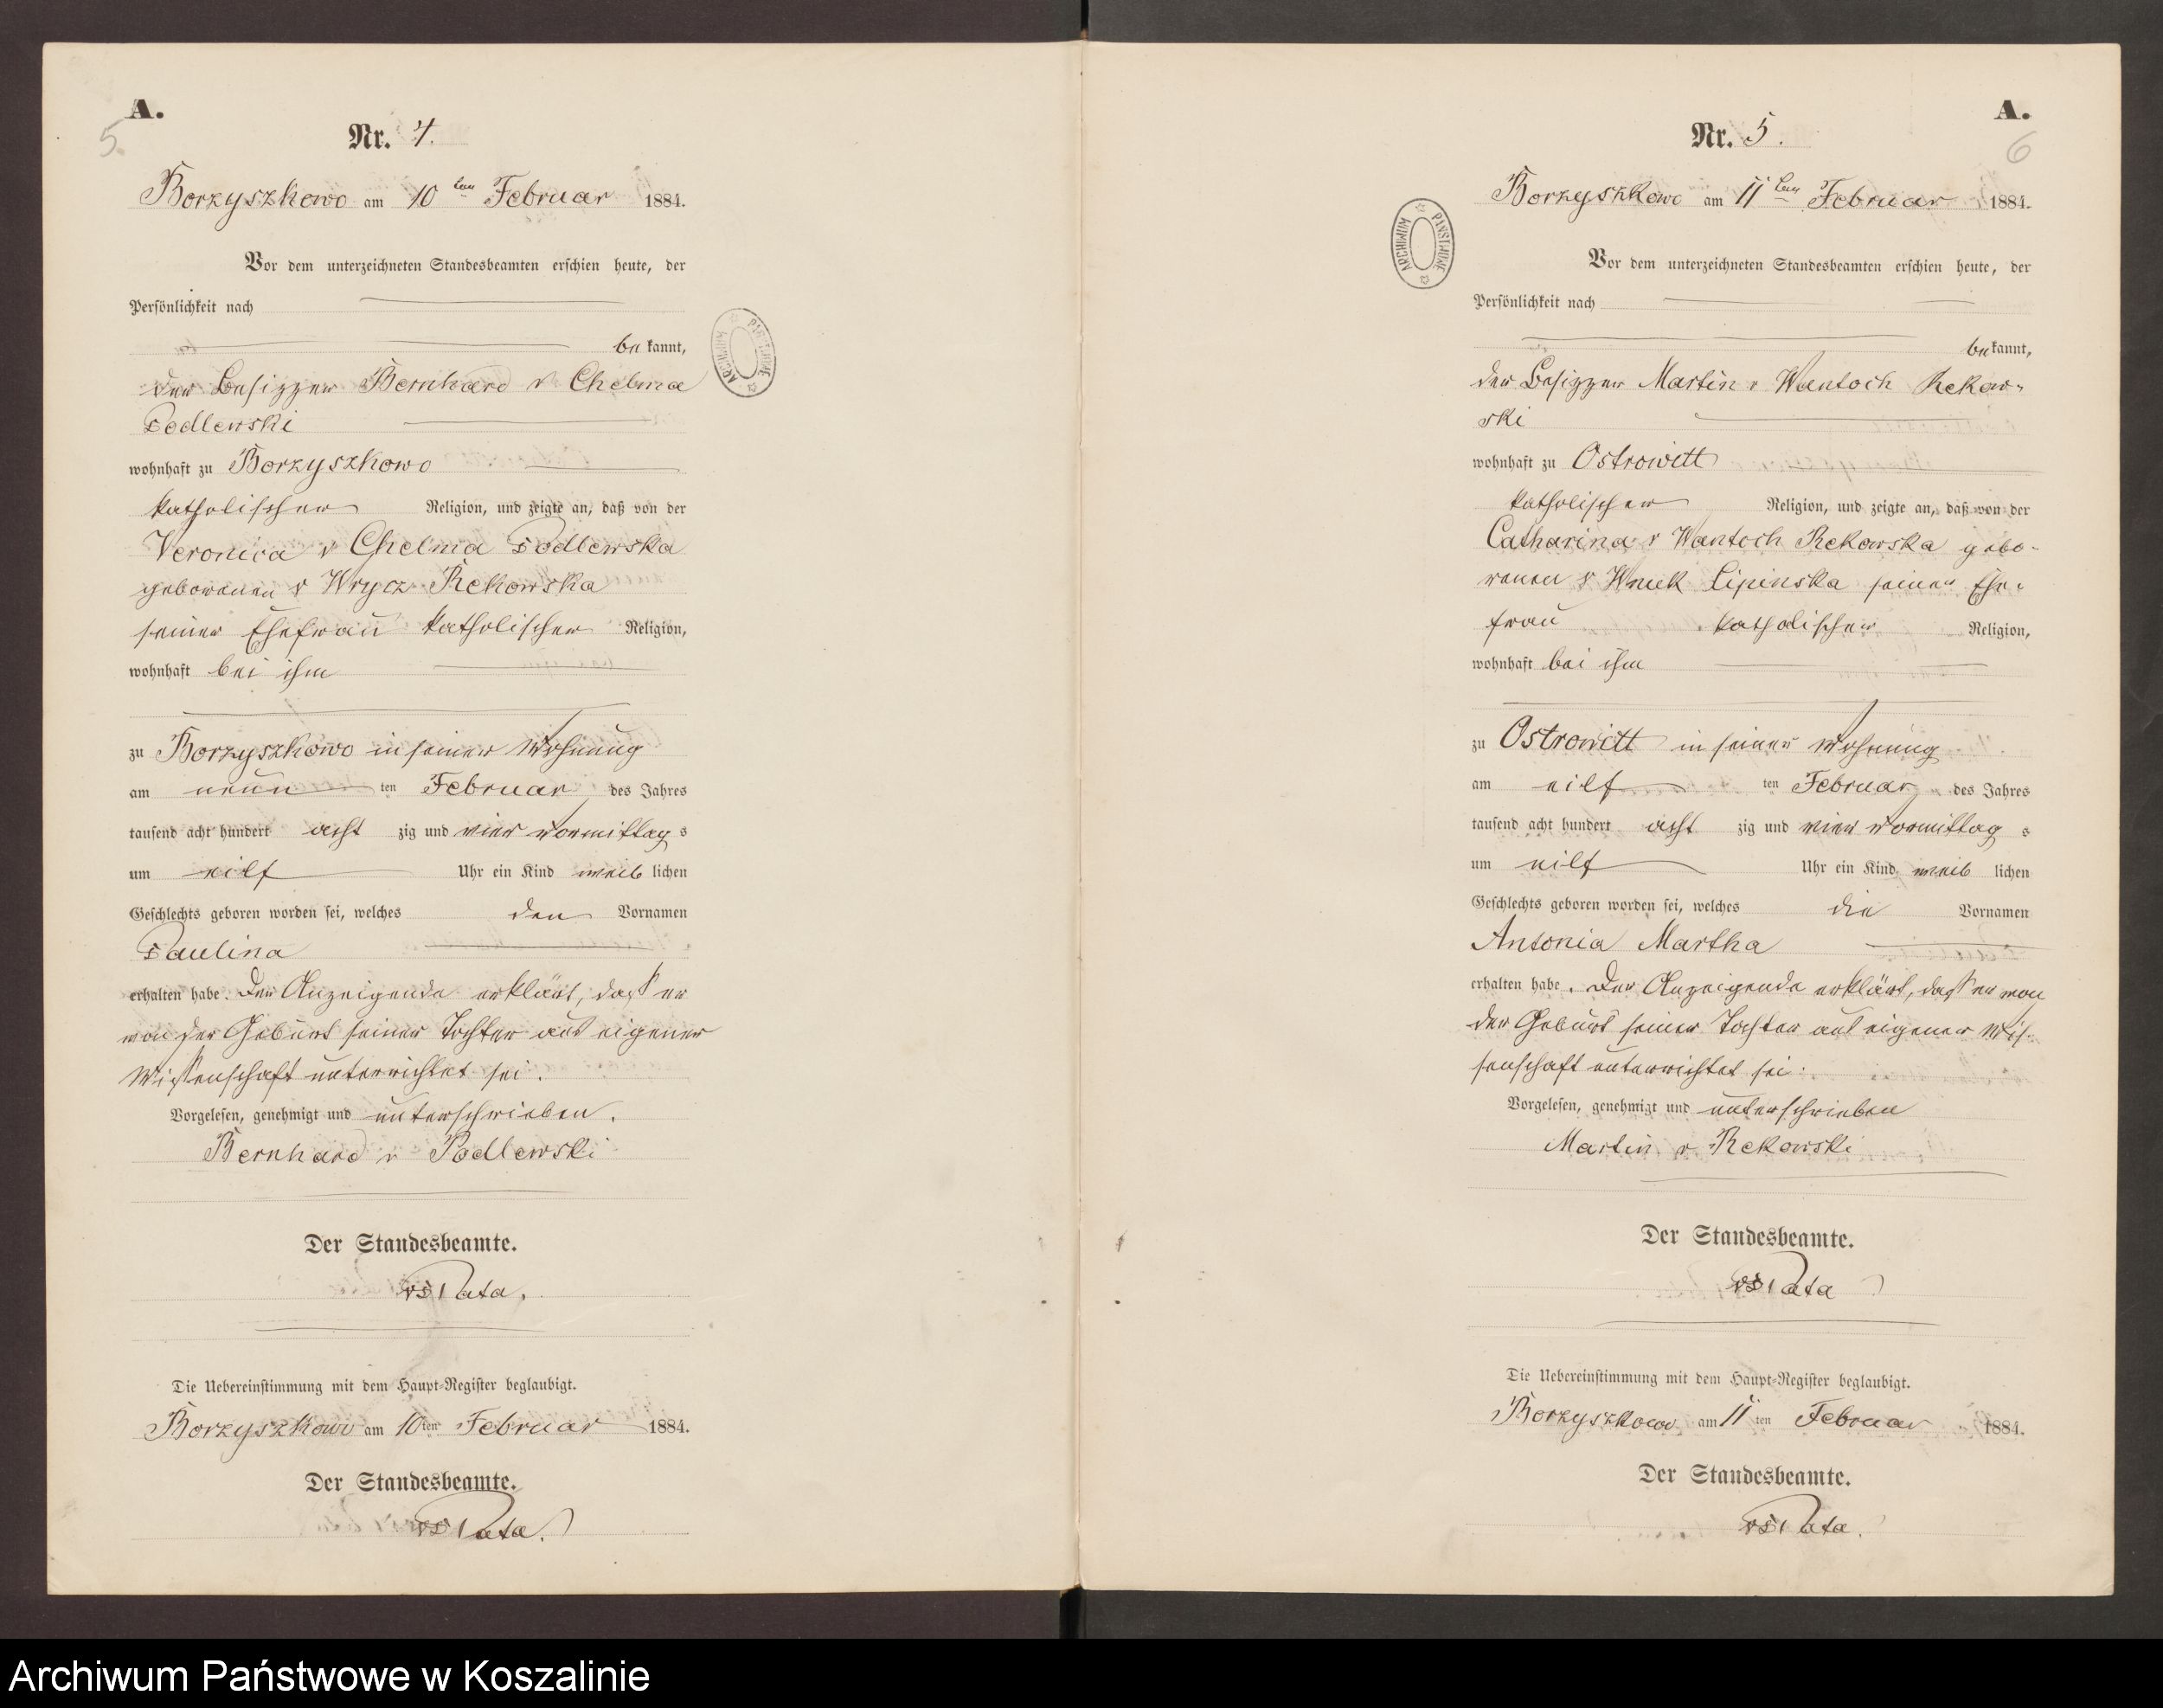 A.
5.
Nr. 4.
Borzyszkowo am 10ten Februar 1884.
Vor dem unterzeichneten Standesbeamten erschien heute, der
Persönlichkeit nach
be kannt,
der Besitzer Bernhard v Chelma
Podlewski
wohnhaft zu Borzyszkowo
katholischer Religion, und zeigte an, daß von der
Veronica v Chelma Podlewska
geborenen v Wrycz Rekowska
seiner Ehefrau katholischer Religion,
wohnhaft bei ihm
zu Borzyszkowo in seiner Wohnung
am neun ten Februar des Jahres
tausend acht hundert acht zig und vier vormittag s
um eilf Uhr ein Kind weib lichen
Geschlechts geboren worden sei, welches den Vornamen
Paulina
erhalten habe. Der Anzeigende erklärt, daß er
von der Geburt seiner Tochter aus eigener
Wissenschaft unterrichtet sei.
Vorgelesen, genehmigt und unterschrieben.
Bernhard v Podlewski
Der Standesbeamte.
Pata.
Die Uebereinstimmung mit dem Haupt-Register beglaubigt.
Borzyszkowo am 10ten Februar 1884.
Der Standesbeamte.
Pata.
ARCHIWUM PAŃSTWOWE
A.
6
Nr. 5.
Borzyszkowo am 11ten Februar 1884.
Vor dem unterzeichneten Standesbeamten erschien heute, der
Persönlichkeit nach
be kannt,
der Besitzer Martin v Wantoch Rekow-
ski
wohnhaft zu Ostrowitt
katholischer Religion, und zeigte an, daß von der
Catharina v Wantoch Rekowska gebo-
renen v Wnuk Lipinska seiner Ehe-
frau katholischer Religion,
wohnhaft bei ihm
zu Ostrowitt in seiner Wohnung
am eilf ten Februar des Jahres
tausend acht hundert acht zig und vier vormittag s
um eilf Uhr ein Kind weib lichen
Geschlechts geboren worden sei, welches die Vornamen
Antonia Martha
erhalten habe. Der Anzeigende erklärt, daß er von
der Geburt seiner Tochter aus eigener Wis-
senschaft unterrichtet sei.
Vorgelesen, genehmigt und unterschrieben
Martin v Rekowski
Der Standesbeamte.
Pata
Die Uebereinstimmung mit dem Haupt-Register beglaubigt.
Borzyszkowo am 11 ten Februar 1884.
Der Standesbeamte.
Pata.
ARCHIWUM PAŃSTWOWE
Archiwum Państwowe w Koszalinie